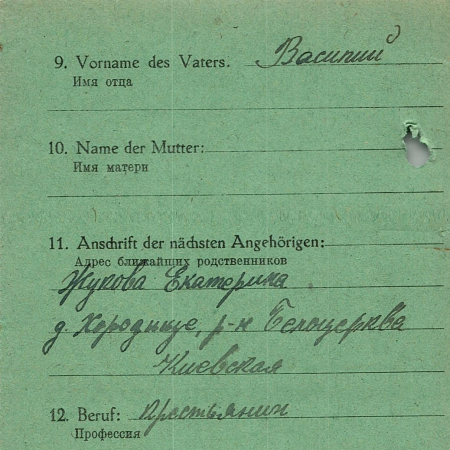 9. Vorname des Vaters. Василий
Имя отца
10. Name der Mutter:
Имя матери
11. Anschrift der nächsten Angehörigen:
Адрес ближайших родственников
Жукова Екатерина
д. Хородище, р-н Белоцерква
Киевская
12. Beruf: крестьянин
Профессия